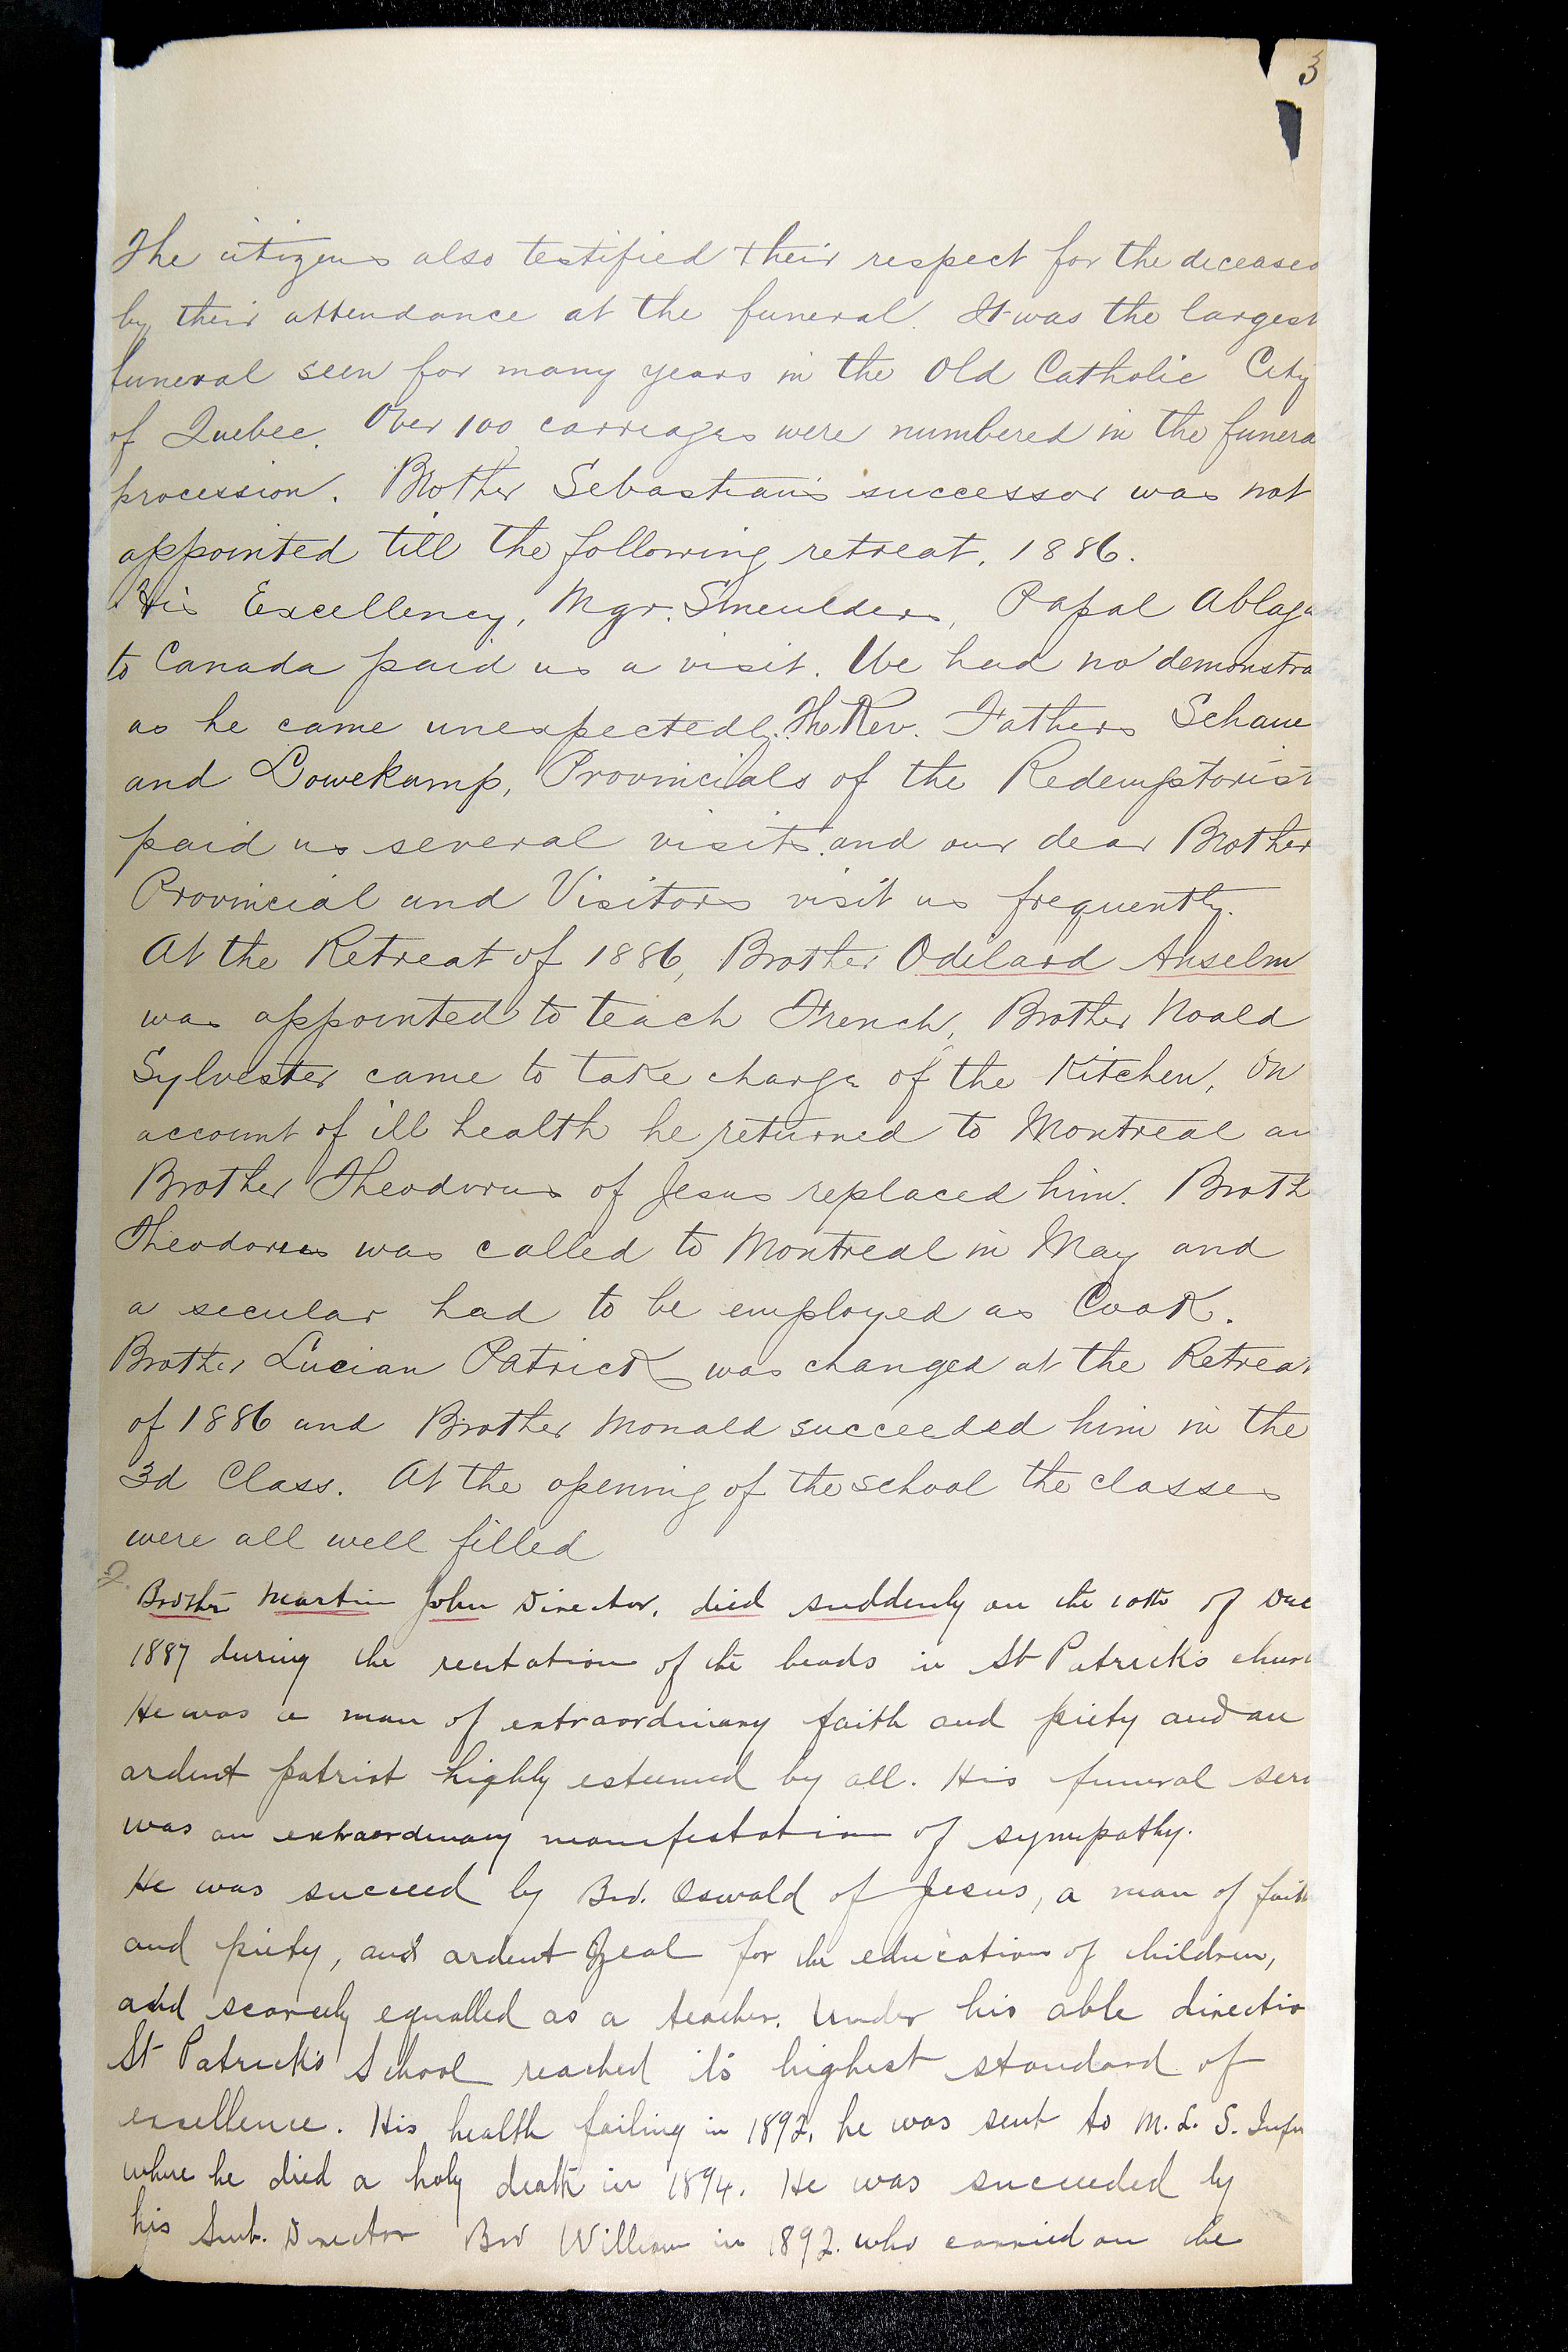 3
The citizens also testified their respect for the deceased
by their attendance at the funeral. It was the largest
funeral seen for many years in the Old Catholic City
of Quebec. Over 100 carreages were numbered in the funera
procession. Brother Sebastian's successor was not
appointed till the following retreat, 1886.
His Excellency, Mgr. Smeulders, Papal Ablega
to Canada paid us a visit. We had no demonstra
as he came unexpectedly. The Rev. Fathers Schaue
and Lowekamp, Provincials of the Redemptorist
paid us several visits and our dear Brother
Provincial and Visitors visit us frequently.
At the Retreat of 1886, Brother Odilard Anselm
was appointed to teach French, Brother Noald
Sylvester came to take charge of the Kitchen, On
account of ill health he returned to Montreal an
Brother Theodorus of Jesus replaced him. Broth
Theodorus was called to Montreal in May and
a secular had to be employed as Cook.
Brother Lucian Patrick was changed at the Retreat
of 1886 and Brother Monald succeeded him in the
3d Class. At the opening of the school the classes
were all well filled
Brother Martin John Director, died suddenly on the 10th of Dec
1887 during the recitation of the beads in St Patrick's churc
He was a man of extraordinary faith and piety and an
ardent patriot highly esteemed by all. His funeral serv
was an extraordinary manifestation of sympathy.
He was succeed by Bro. Oswald of Jesus, a man of faith
and piety, and ardent Zeal for the education of children,
and scarcely equalled as a teacher. Under his able directio
St Patrick's School reached it's highest standard of
excellence. His health failing in 1892, he was sent to M. L. S. Infir
where he died a holy death in 1894. He was succeeded by
his Sub. Director Bro William in 1892. who carried on the